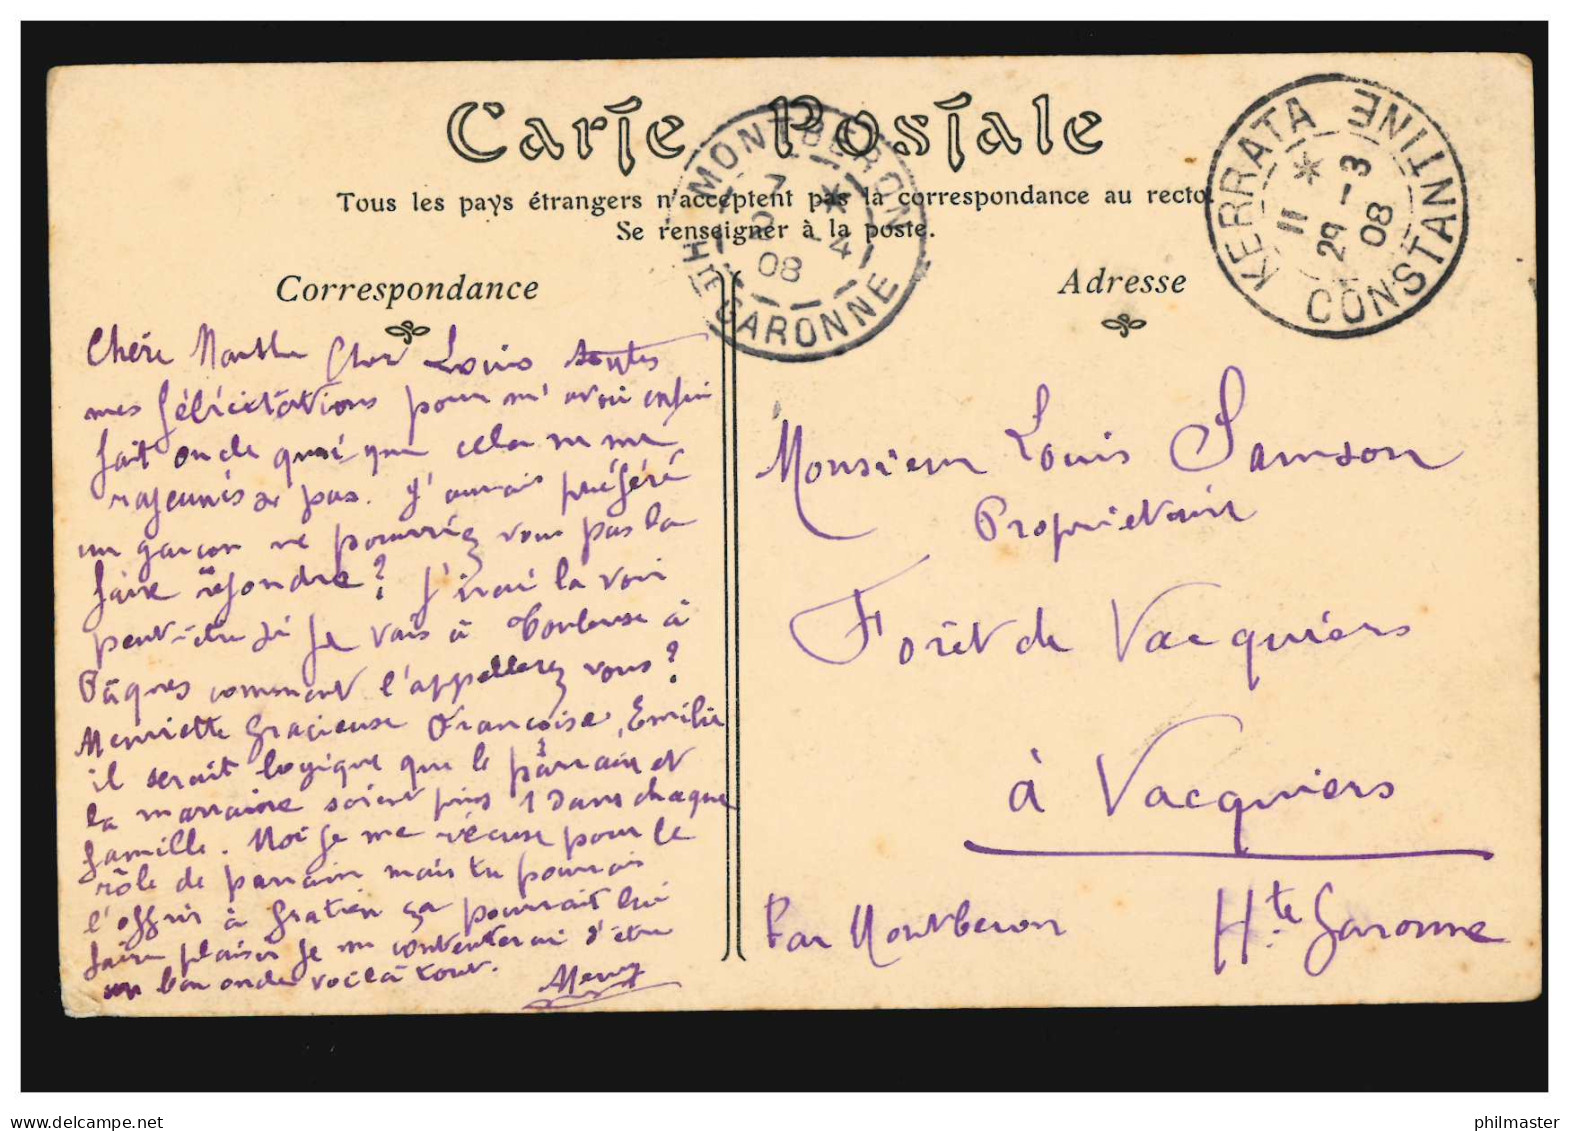 Carte Postale
Tous les pays étrangers n'acceptent pas la correspondance au recto.
Se renseigner à la poste.
MONTBERON
7 *
2 -4
08
Hte GARONNE
KERRATA CONSTANTINE
11 *
29 -3
08
Correspondance
Chère Marthe Cher Louis toutes
mes félicitations pour m'avoir enfin
fait oncle quoi que cela ne me
rajeunisse pas. J'aurais préféré
un garçon ne pourriez vous pas la
faire refondre? J'irai la voir
peut-être si je vais à Toulouse à
Pâques comment l'appellerez vous?
Henriette Gracieuse Françoise, Emilie
il serait logique que le parrain et
la marraine soient pris 1 dans chaque
famille. Moi je me récuse pour le
rôle de parrain mais tu pourrais
l'offrir à Gratien ça pourrait lui
faire plaisir je me contenterai d'être
un bon oncle voilà tout.
Henry
Adresse
Monsieur Louis Samson
Propriétaire
Forêt de Vacquiers
à Vacquiers
Par Montberon Hte Garonne
www.delcampe.net
philmaster